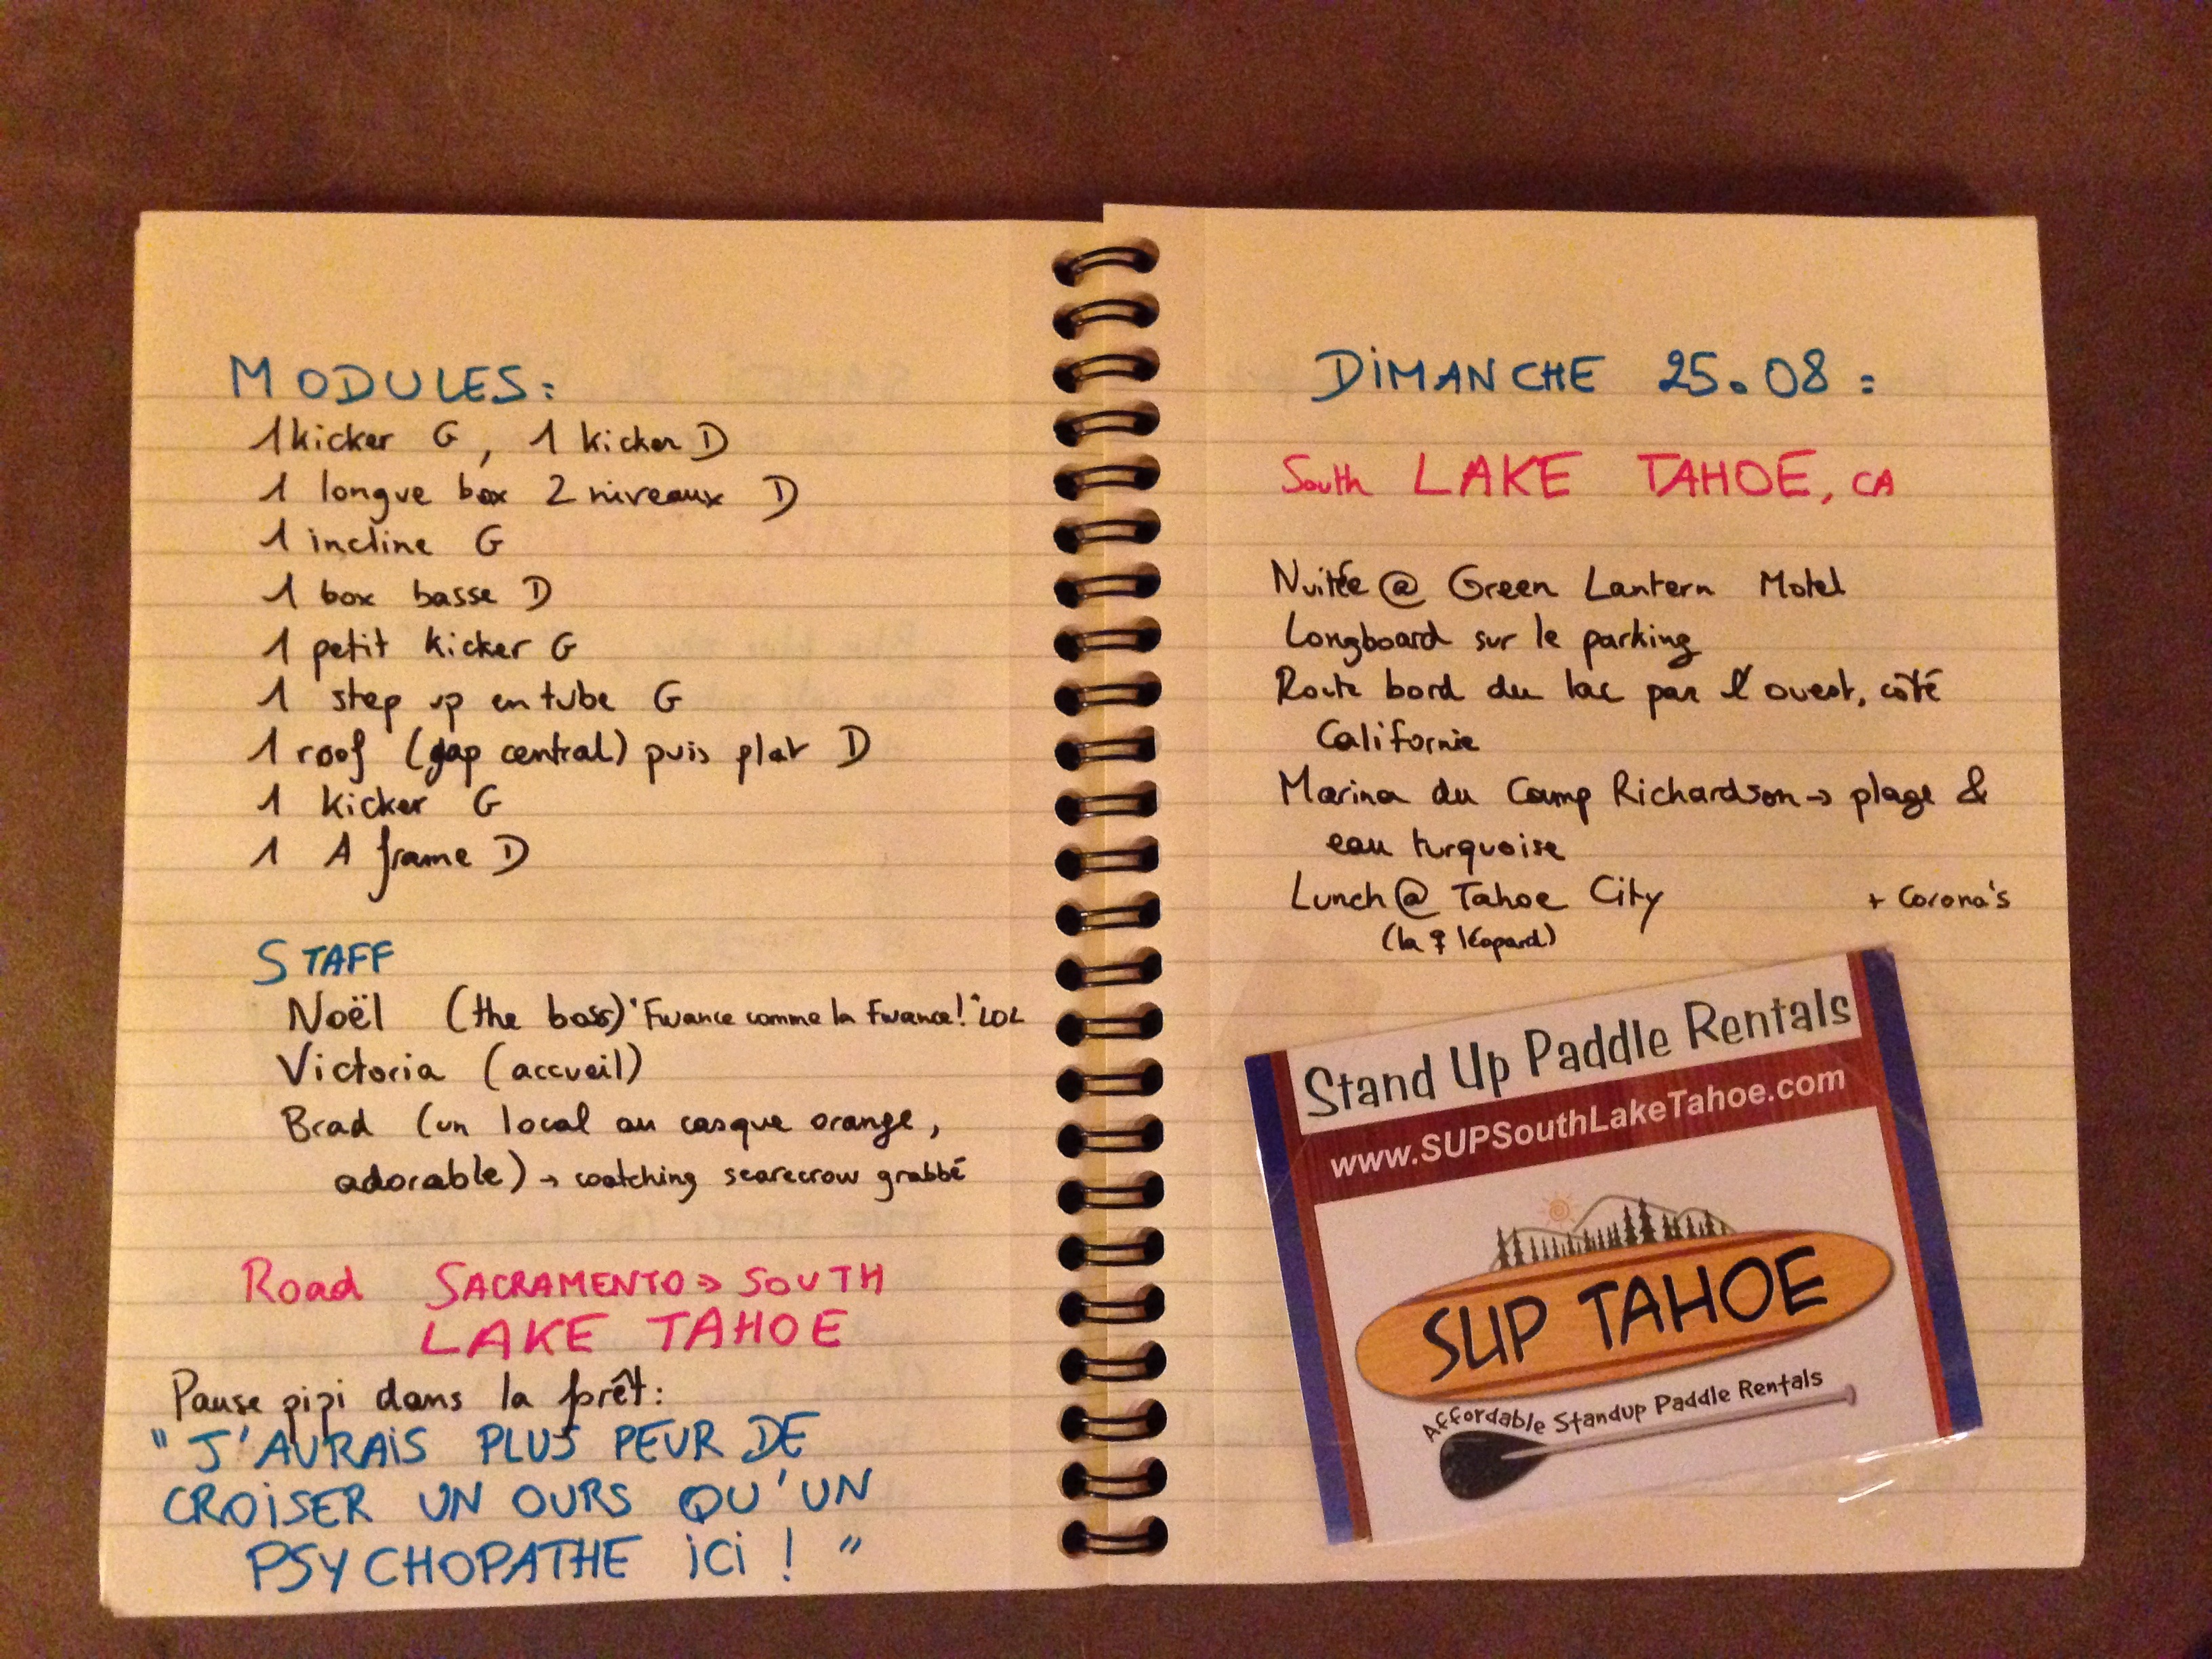 MODULES:
1 kicker G, 1 kicker D
1 longue box 2 niveaux D
1 incline G
1 box basse D
1 petit kicker G
1 step up en tube G
1 roof (gap central) puis plat D
1 kicker G
1 A frame D
STAFF
Noël (the boss) "Fwance comme la Fwance!" LOL
Victoria (accueil)
Brad (un local au casque orange,
adorable) → coatching scarecrow grabbé
Road SACRAMENTO > SOUTH
LAKE TAHOE
Pause pipi dans la forêt:
"J'AURAIS PLUS PEUR DE
CROISER UN OURS QU'UN
PSYCHOPATHE ICI ! "
DIMANCHE 25.08 :
South LAKE TAHOE, CA
Nuitée @ Green Lantern Motel
Longboard sur le parking
Route bord du lac par l'ouest, côté
Californie
Marina du Camp Richardson → plage &
eau turquoise
Lunch @ Tahoe City + Corona's
(la ♀ léopard)
Stand Up Paddle Rentals
www.SUPSouthLakeTahoe.com
SUP TAHOE
Affordable Standup Paddle Rentals